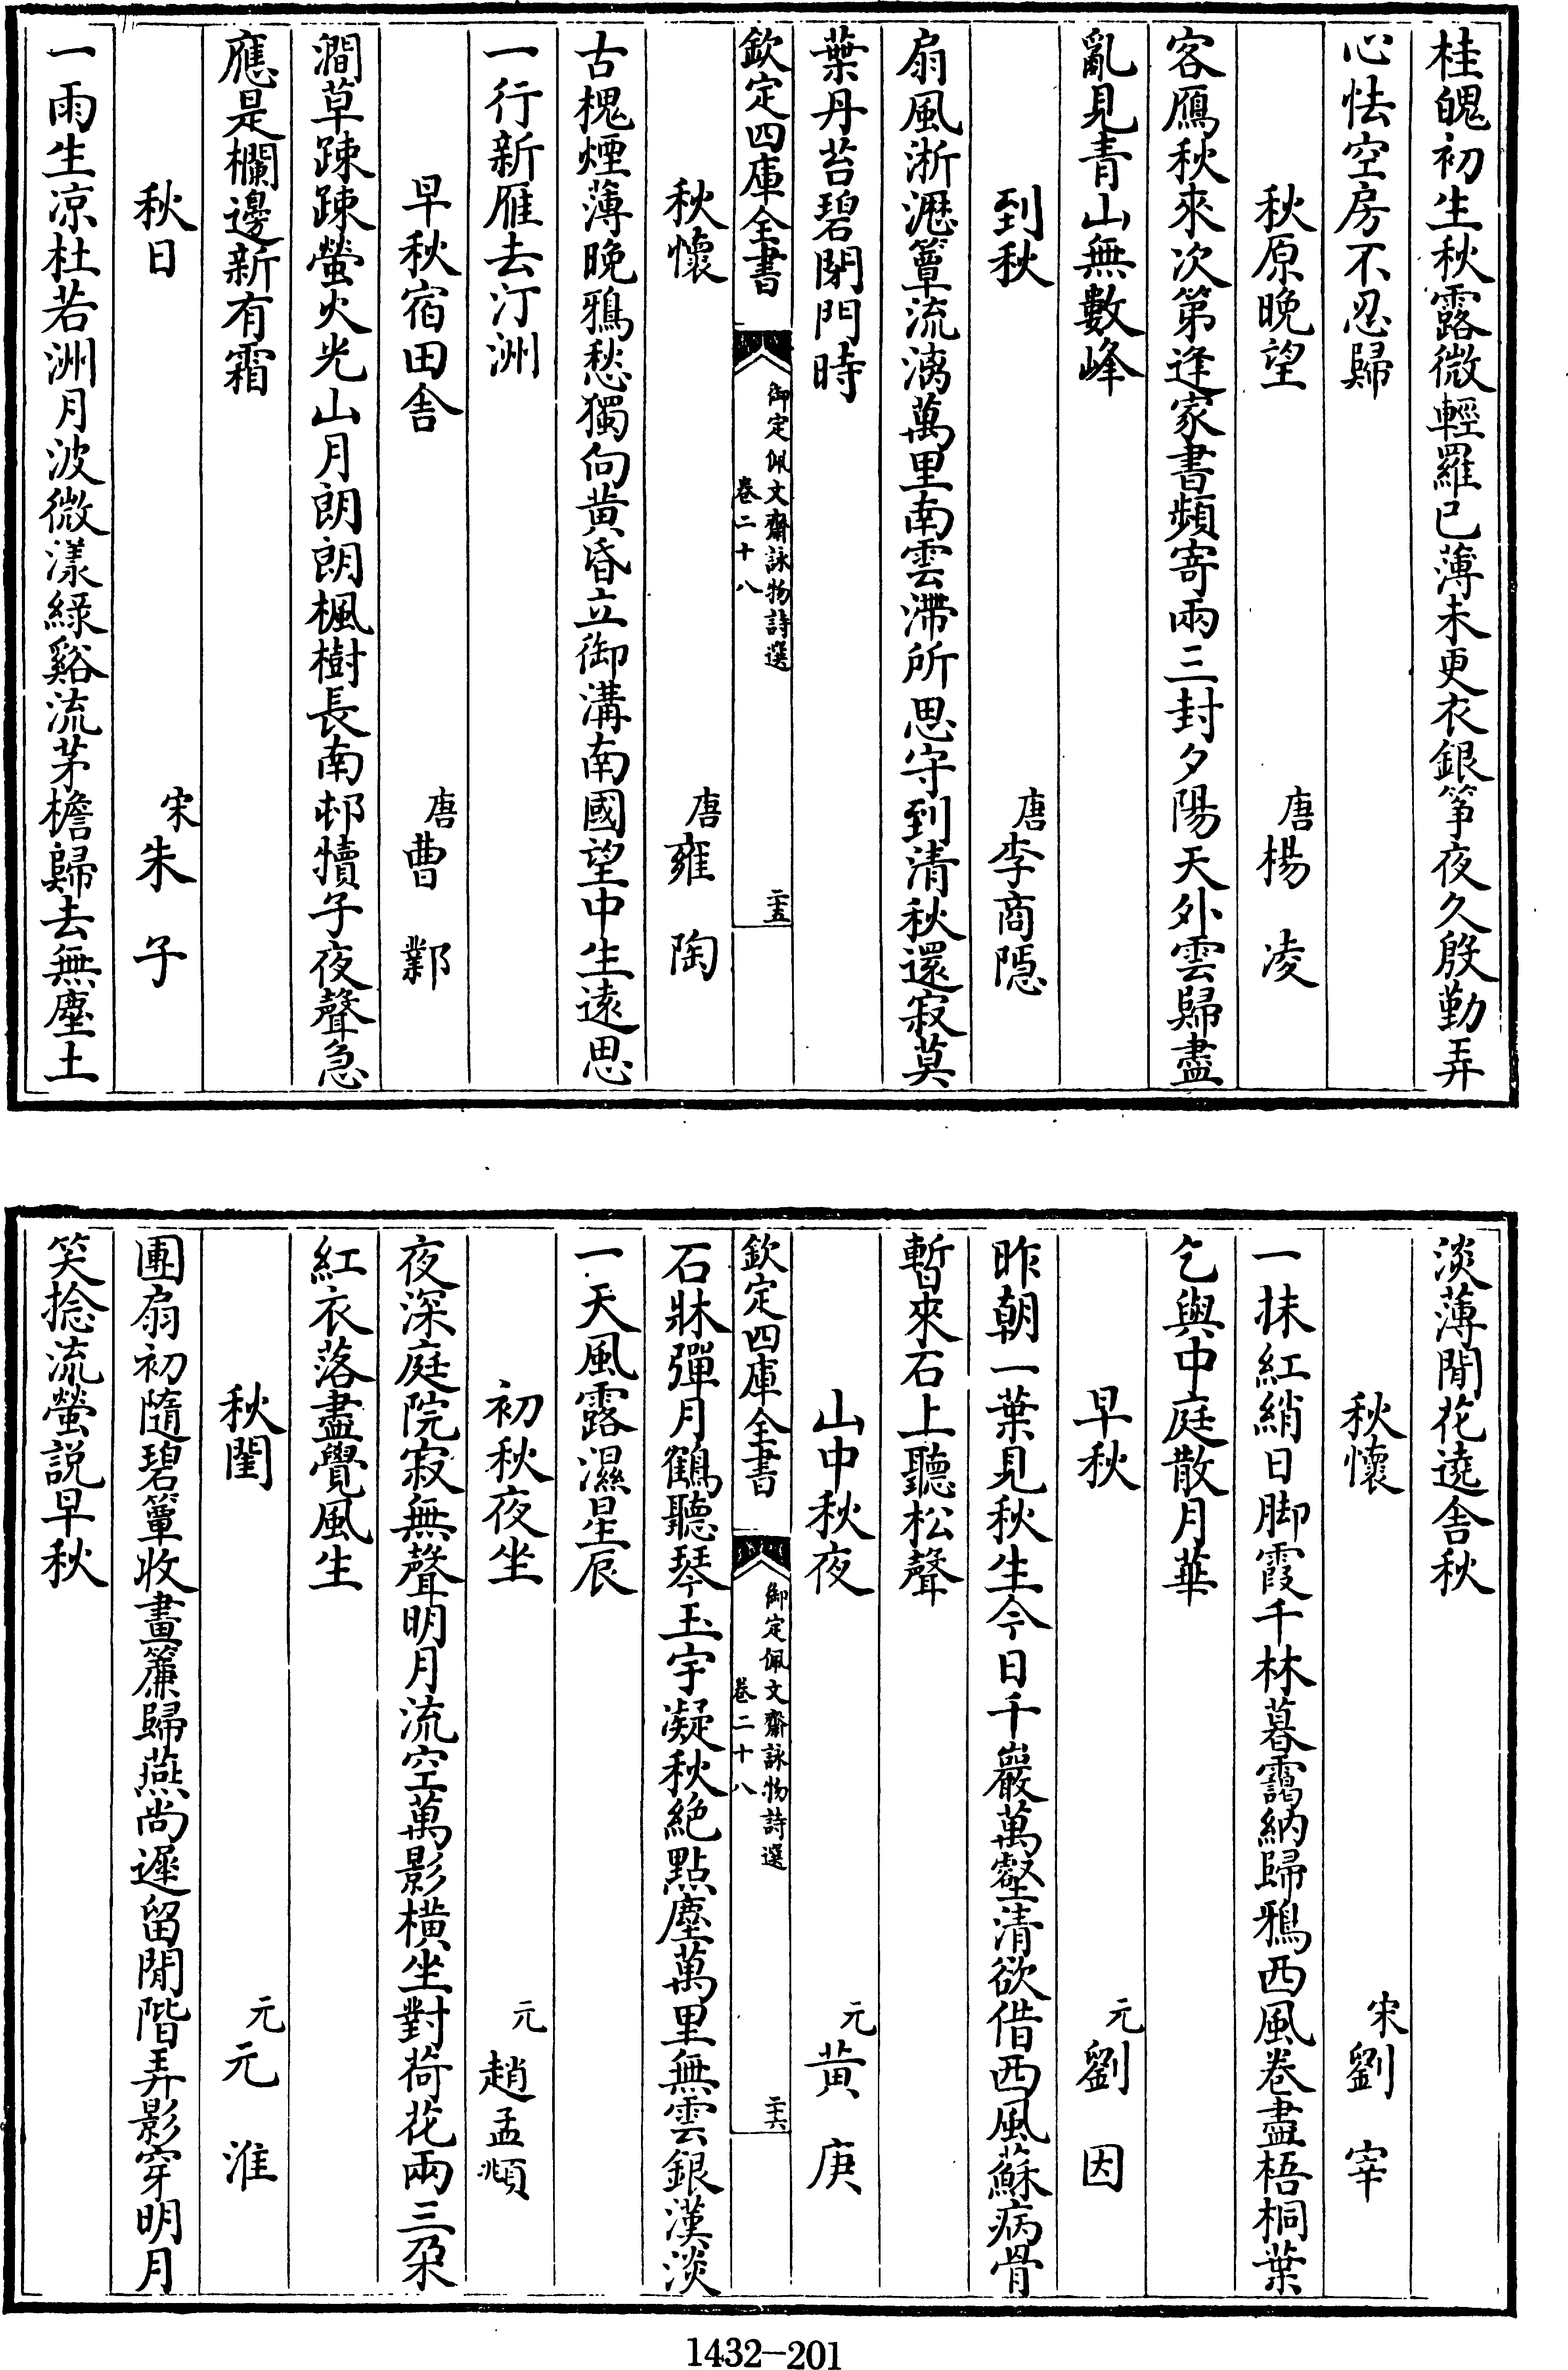 桂魄初生秋露微輕羅已薄未更衣銀筝夜久殷勤弄
心怯空房不忍歸
秋原晚望 唐楊凌
客鴈秋來次第逢家書頻寄兩三封夕陽天外雲歸盡
亂見青山無數峰
到秋 唐李商隠
扇風淅瀝簟流漓萬里南雲滯所思守到清秋還寂莫
葉丹苔碧閉門時
欽定四庫全書 御定佩文齋詠物詩選 卷二十八 二十五
秋懷 唐雍陶
古槐煙薄晚鴉愁獨向黄昏立御溝南國望中生逺思
一行新雁去汀洲
早秋宿田舍 唐曹鄴
澗草踈踈螢火光山月朗朗楓樹長南邨犢子夜聲急
應是欄邊新有霜
秋日 宋朱子
一雨生凉杜若洲月波微漾緑谿流茅檐歸去無塵土
淡薄閒花遶舍秋
秋懷 宋劉宰
一抹紅綃日脚霞千林暮靄納歸鴉西風卷盡梧桐葉
乞與中庭散月華
早秋 元劉因
昨朝一葉見秋生今日千巖萬壑清欲借西風蘇病骨
暫來石上聽松聲
山中秋夜 元黄庚
欽定四庫全書 御定佩文齋詠物詩選 卷二十八 二十六
石牀彈月鶴聽琴玉宇凝秋絶點塵萬里無雲銀漢淡
一天風露濕星辰
初秋夜坐 元趙孟頫
夜深庭院寂無聲明月流空萬影横坐對荷花兩三朶
紅衣落盡覺風生
秋閨 元元淮
團扇初隨碧簟收畫簾歸燕尚遲留閒階弄影穿明月
笑捻流螢説早秋
1432-201